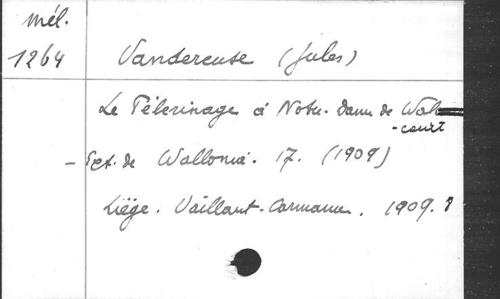 mél.
1264
Vandereuse (Jules)
Le Pèlerinage à Notre-Dame de Wal
-court
- Ext. de Wallonia. 17. (1909)
Liège. Vaillant-Carmanne. 1909.